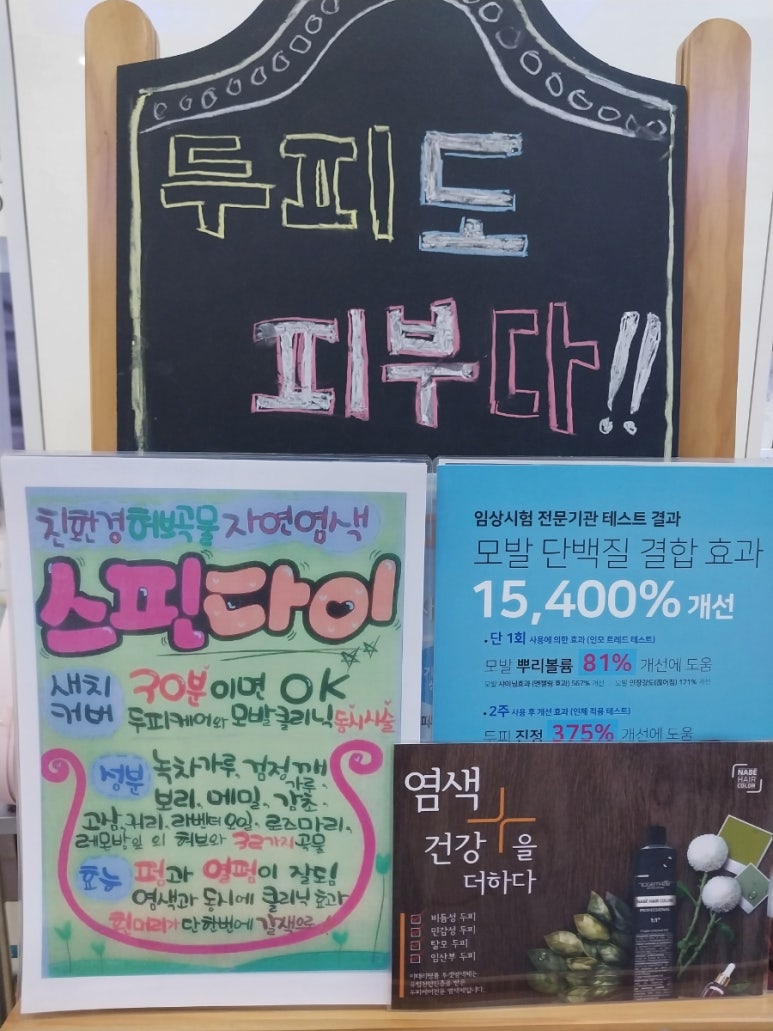 두피도
피부다!!
친환경 허브곡물 자연염색
스핀다이
새치
커버
30분이면 OK
두피케어와 모발클리닉 동시시술
성분
녹차가루, 검정깨
가루,
보리, 메밀, 감초,
고삼, 귀리, 라벤더오일, 로즈마리,
레몬밤잎 외 허브와 32가지곡물
효능
펌과 열펌이 잘됨
염색과 동시에 클리닉 효과
흰머리가 단한번에 갈색으로!
임상시험 전문기관 테스트 결과
모발 단백질 결합 효과
15,400% 개선
• 단 1회 사용에 의한 효과 (인모 트레드 테스트)
모발 뿌리볼륨 81% 개선에 도움
모발 샤이닝효과 (엔젤링 효과) 567% 개선 모발 인장강도(끊어짐) 171% 개선
• 2주 사용 후 개선 효과 (인체 적용 테스트)
두피 진정 375% 개선에 도움
염색
건강을
더하다
NABE
HAIR
COLOR
비듬성 두피
민감성 두피
탈모 두피
임산부 두피
NABE HAIR COLOR
PROFESSIONAL